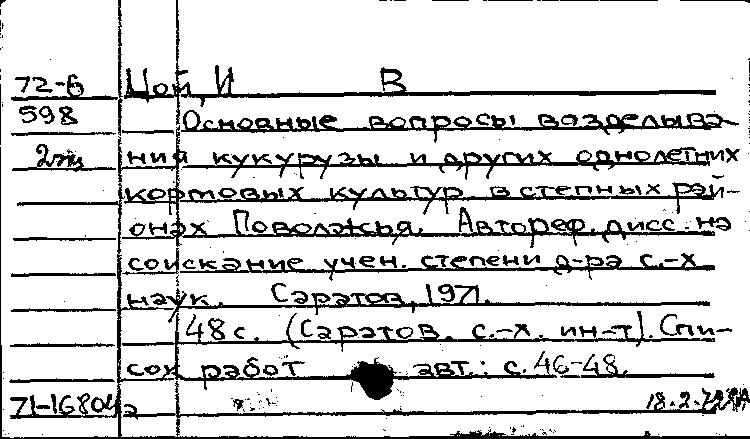 72-6 Цой, И В
598 Основные вопросы возделыва-
2экз ния кукурузы и других однолетних
кормовых культур в степных рай-
онах Поволжья. Автореф. дисс. на
соискание учен. степени д-ра с.-х
наук. Саратов, 1971.
48 с. (Саратов. с.-х. ин-т). Спи-
сок работ авт.: с. 46-48.
71-16804а 18.2.72